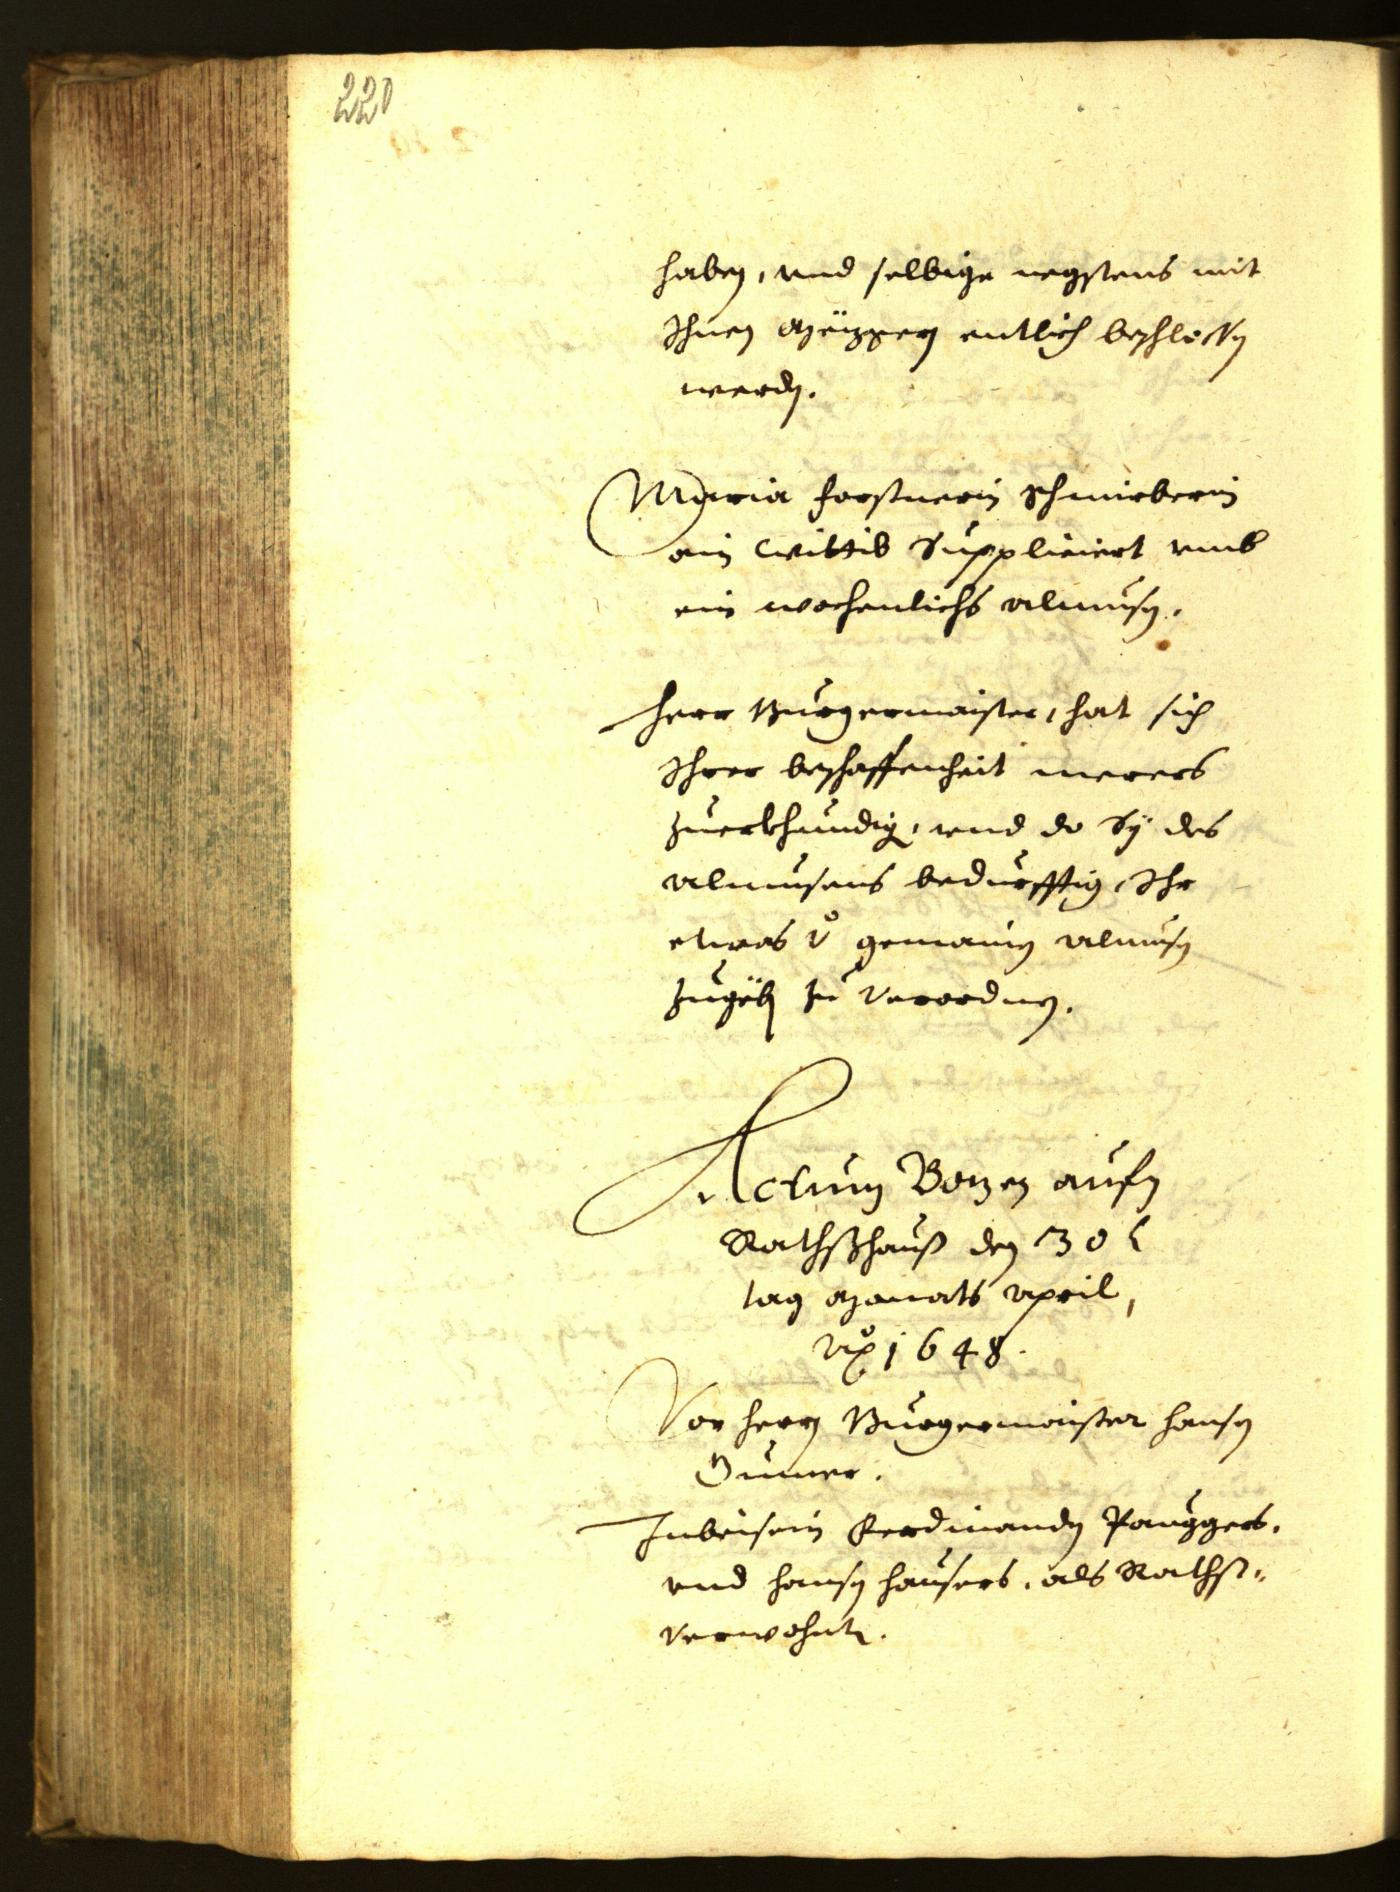 220
haben, vnd selbige negstens mit
Ihnen Menggen entlich beschlossen
werden.
Maria Forstnerin Schmirberin
ain Wittib Suppliciert vmb
ein wochenlichs Almusen.
Herr Burgermaister, hat sich
Ihrer beschaffenheit merers
zuerkhundigen, vnd do Sÿ des
Almusens bedürfftig, Ihr
etwas vom gemainen Almusen
zugeben zu verordnen.
Actum Botzen aufm
Rathßhauß den 30t
tag Monats April,
Ao 1648.
Vor Herrn Burgermaister Hansen
Gumer.
Inbeisein Ferdinanden Pauggers,
vnd Hansen Hausers, als Raths-
verwohnte.